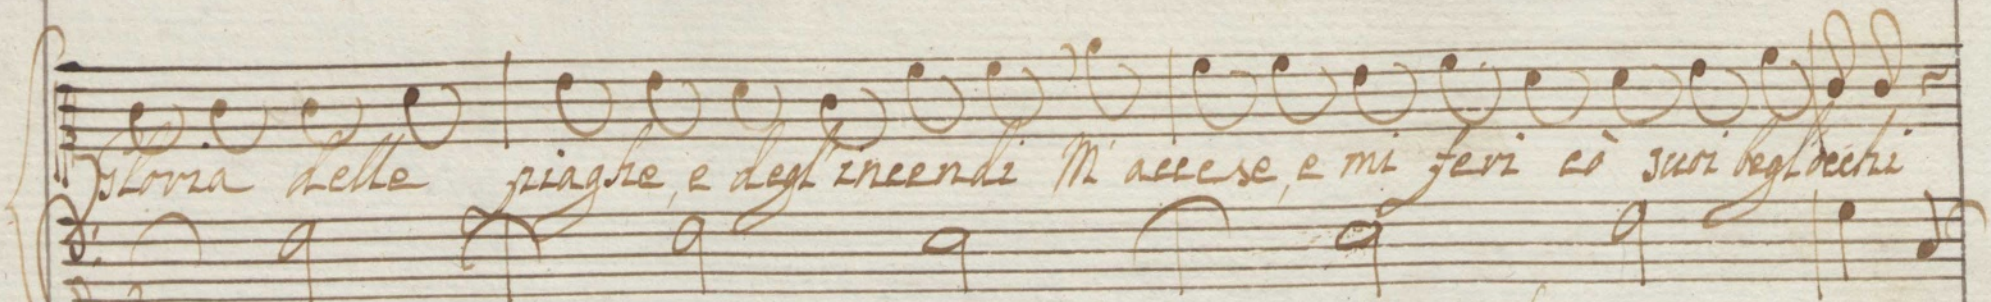 gloria delle piaghe, e degl'incendi M'accese, e mi ferì cò suoi begl'occhi